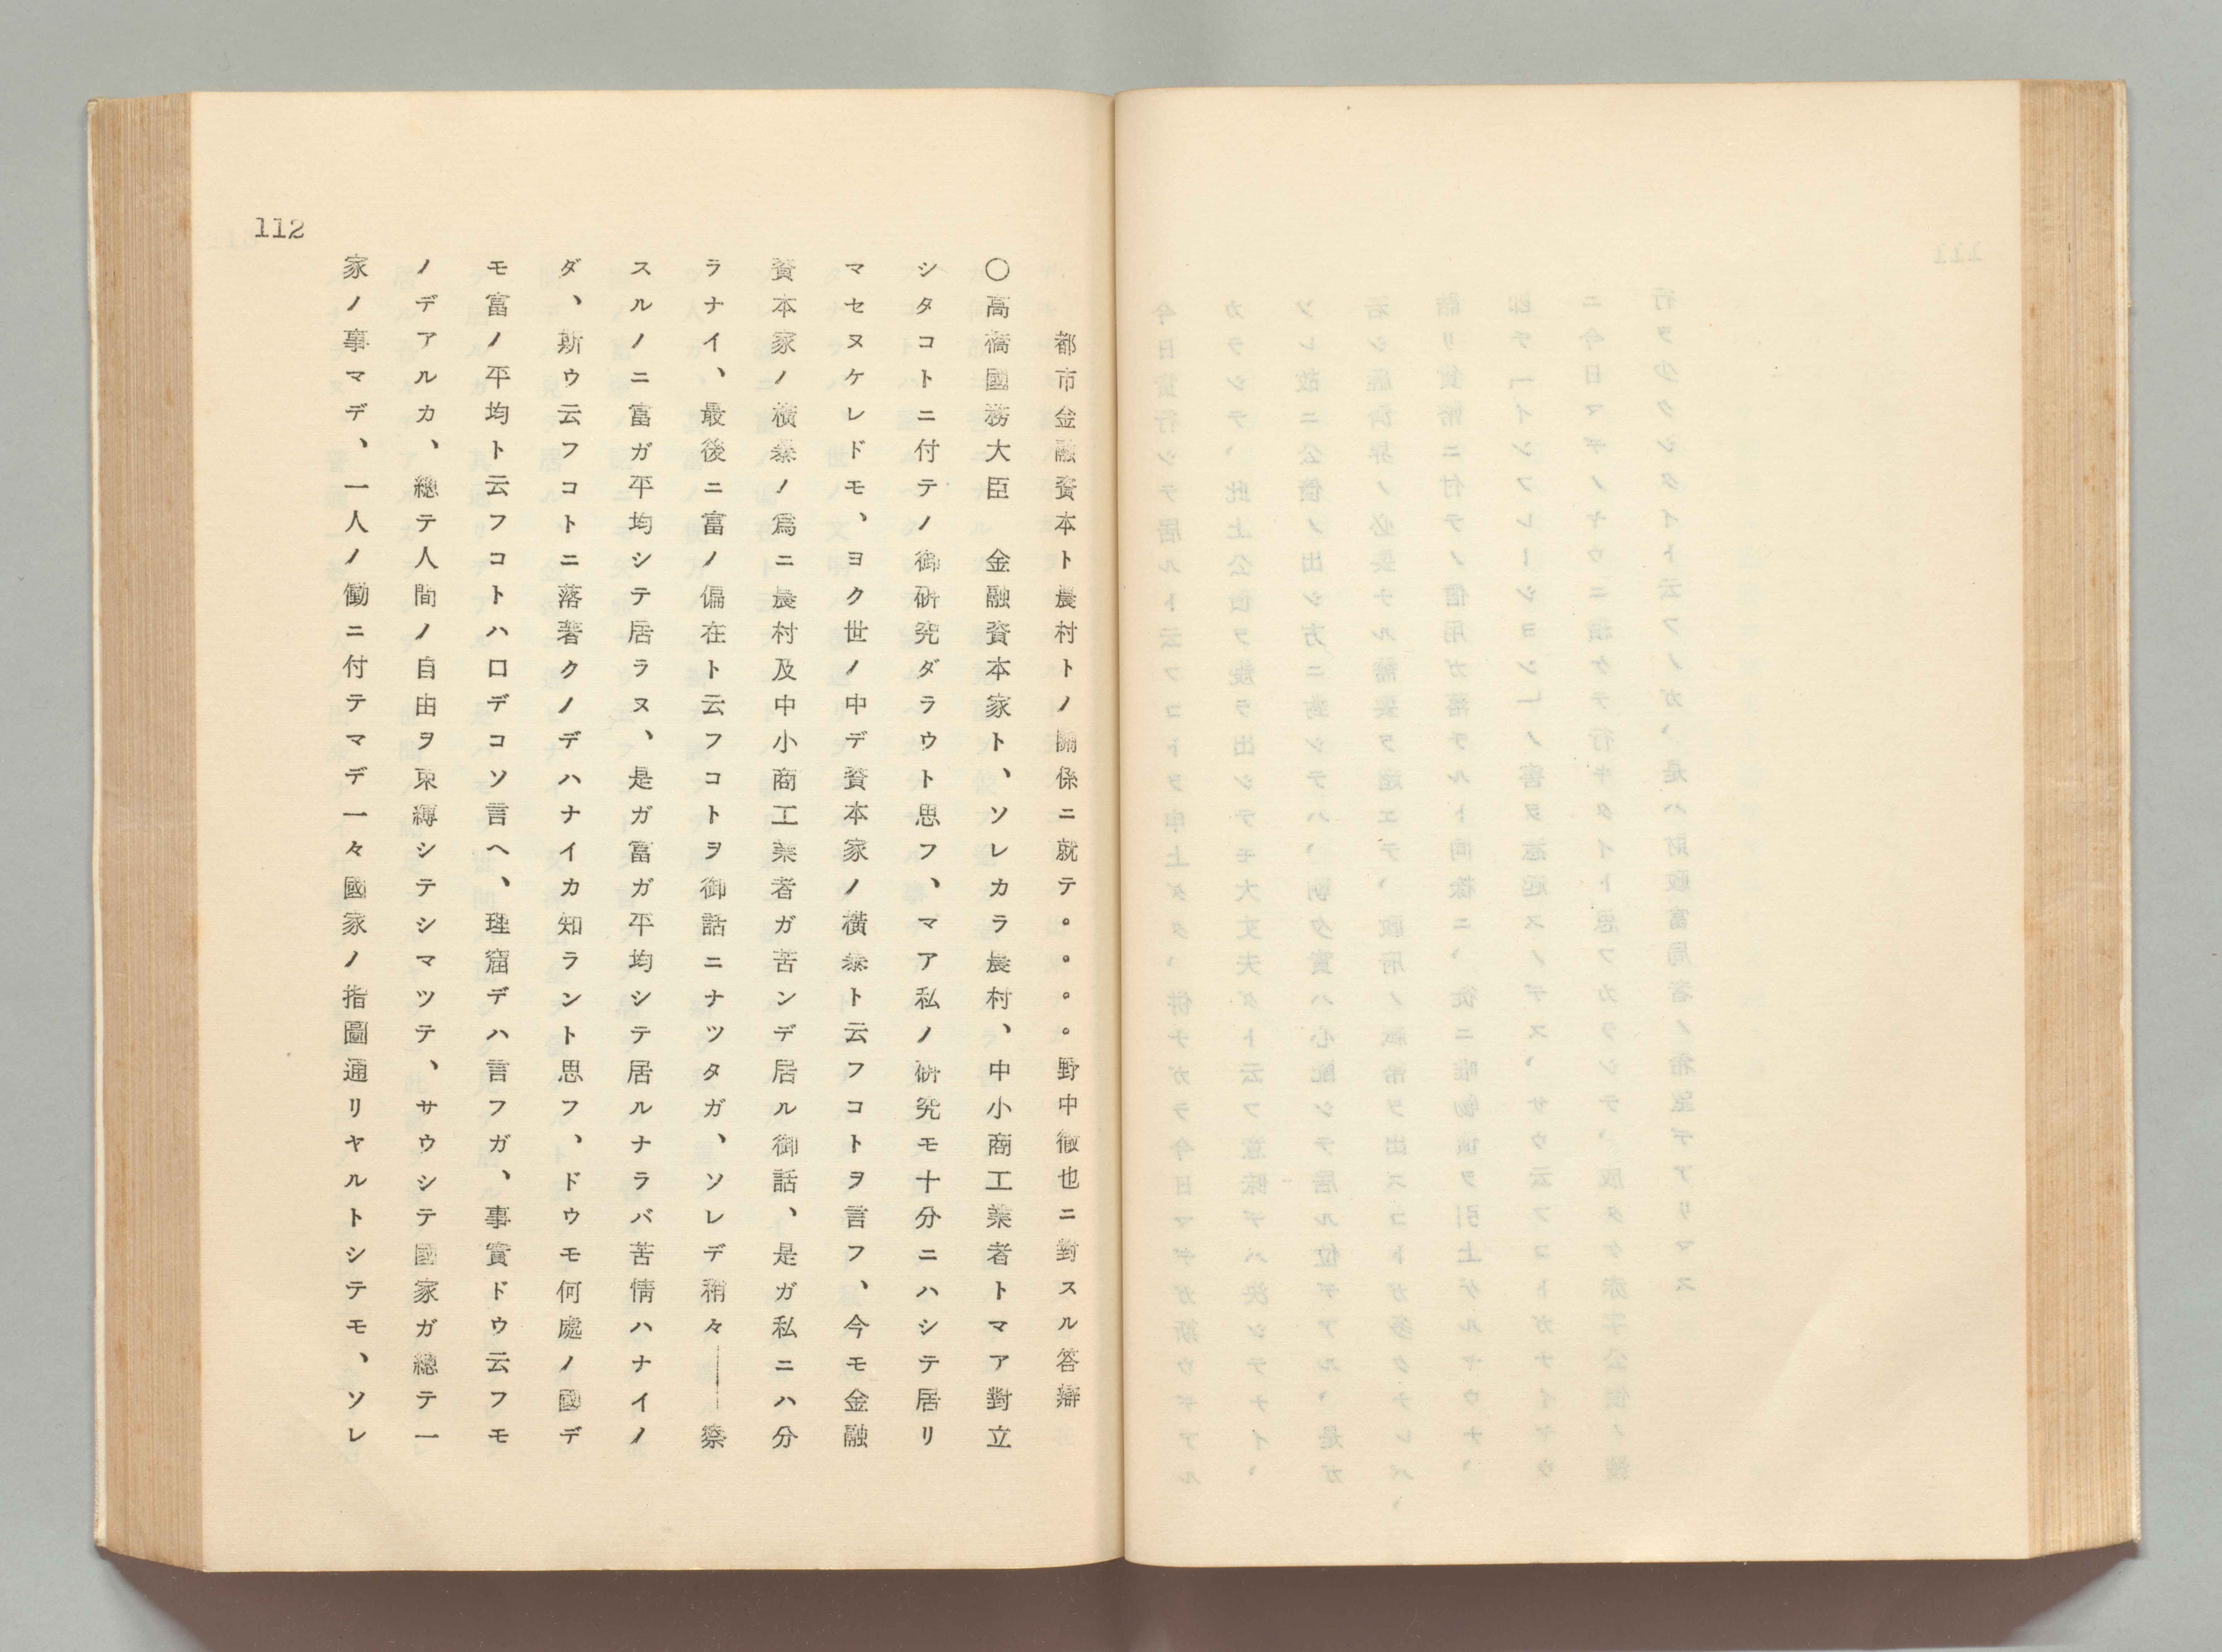 112
都市金融資本ト農村トノ關係ニ就テ。。。。野中徹也ニ對スル答辯
〇高橋國務大臣　金融資本家ト、ソレカラ農村、中小商工業者トマア對立
シタコトニ付テノ御研究ダラウト思フ、マア私ノ研究モ十分ニハシテ居リ
マセヌケレドモ、ヨク世ノ中デ資本家ノ橫暴ト云フコトヲ言フ、今モ金融
資本家ノ橫暴ノ爲ニ農村及中小商工業者ガ苦ンデ居ル御話、是ガ私ニハ分
ラナイ、最後ニ富ノ偏在ト云フコトヲ御話ニナツタガ、ソレデ稍々――察
スルノニ富ガ平均シテ居ラヌ、是ガ富ガ平均シテ居ルナラバ苦情ハナイノ
ダ、斯ウ云フコトニ落著クノデハナイカ知ラント思フ、ドウモ何處ノ國デ
モ富ノ平均ト云フコトハ口デコソ言ヘ、理窟デハ言フガ、事實ドウ云フモ
ノデアルカ、總テ人間ノ自由ヲ束縛シテシマツテ、サウシテ國家ガ總テ一
家ノ事マデ、一人ノ働ニ付テマデ一々國家ノ指圖通リヤルトシテモ、ソレ